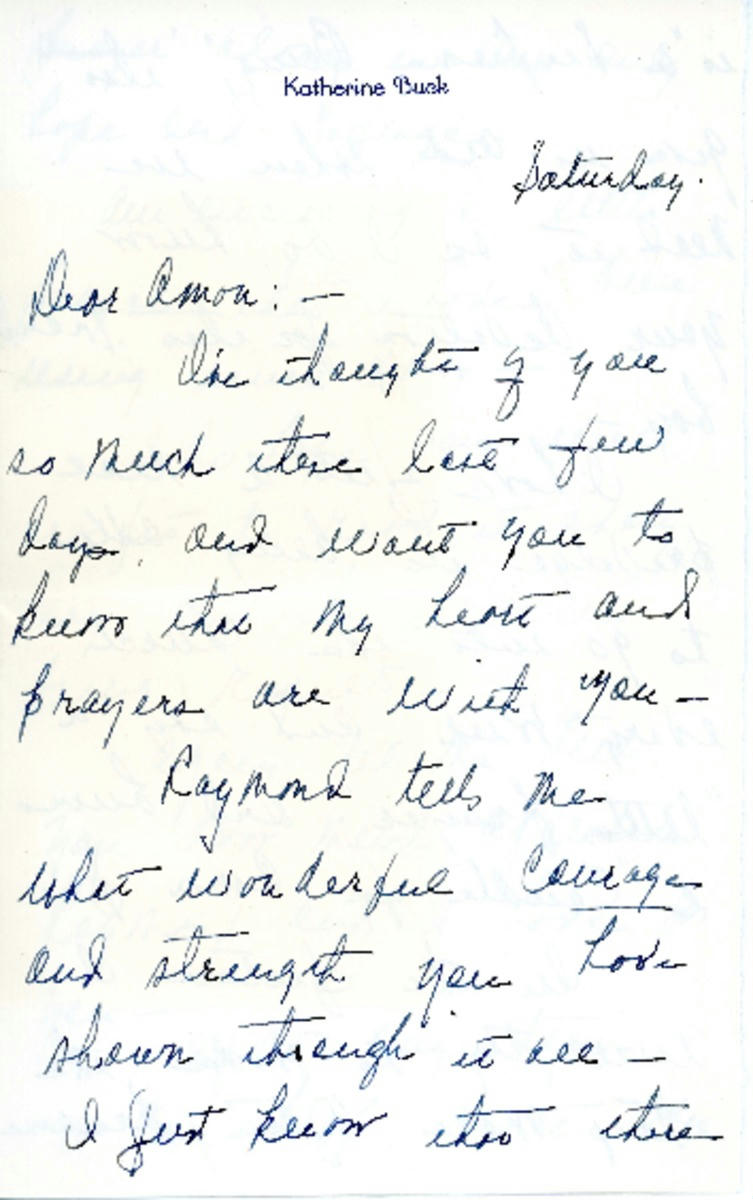 Katherine Buck
Saturday.
Dear Amon: —
I've thought of you
so much these last few
days, and want you to
know that my heart and
prayers are with you —
Raymond tells me
what wonderful courage
and strength you have
shown through it all —
I just know that there